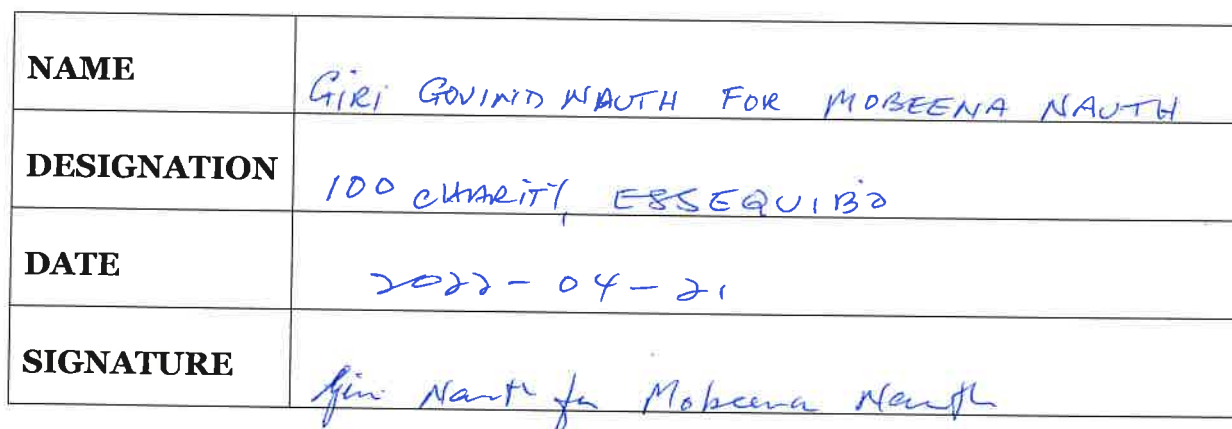 NAME GIRI GOVIND NAUTH FOR MOBEENA NAUTH
DESIGNATION 100 CHARITY, ESSEQUIBO
DATE 2022-04-21
SIGNATURE Giri Nauth for Mobeena Nauth